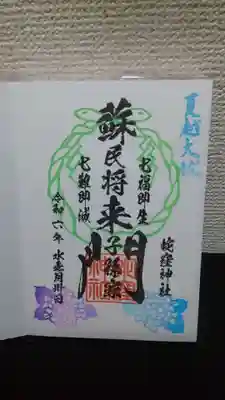 夏越大祓
七福即生
蛇窪神社
蘇民将来子孫家門
七難即滅
令和六年 水無月卅日